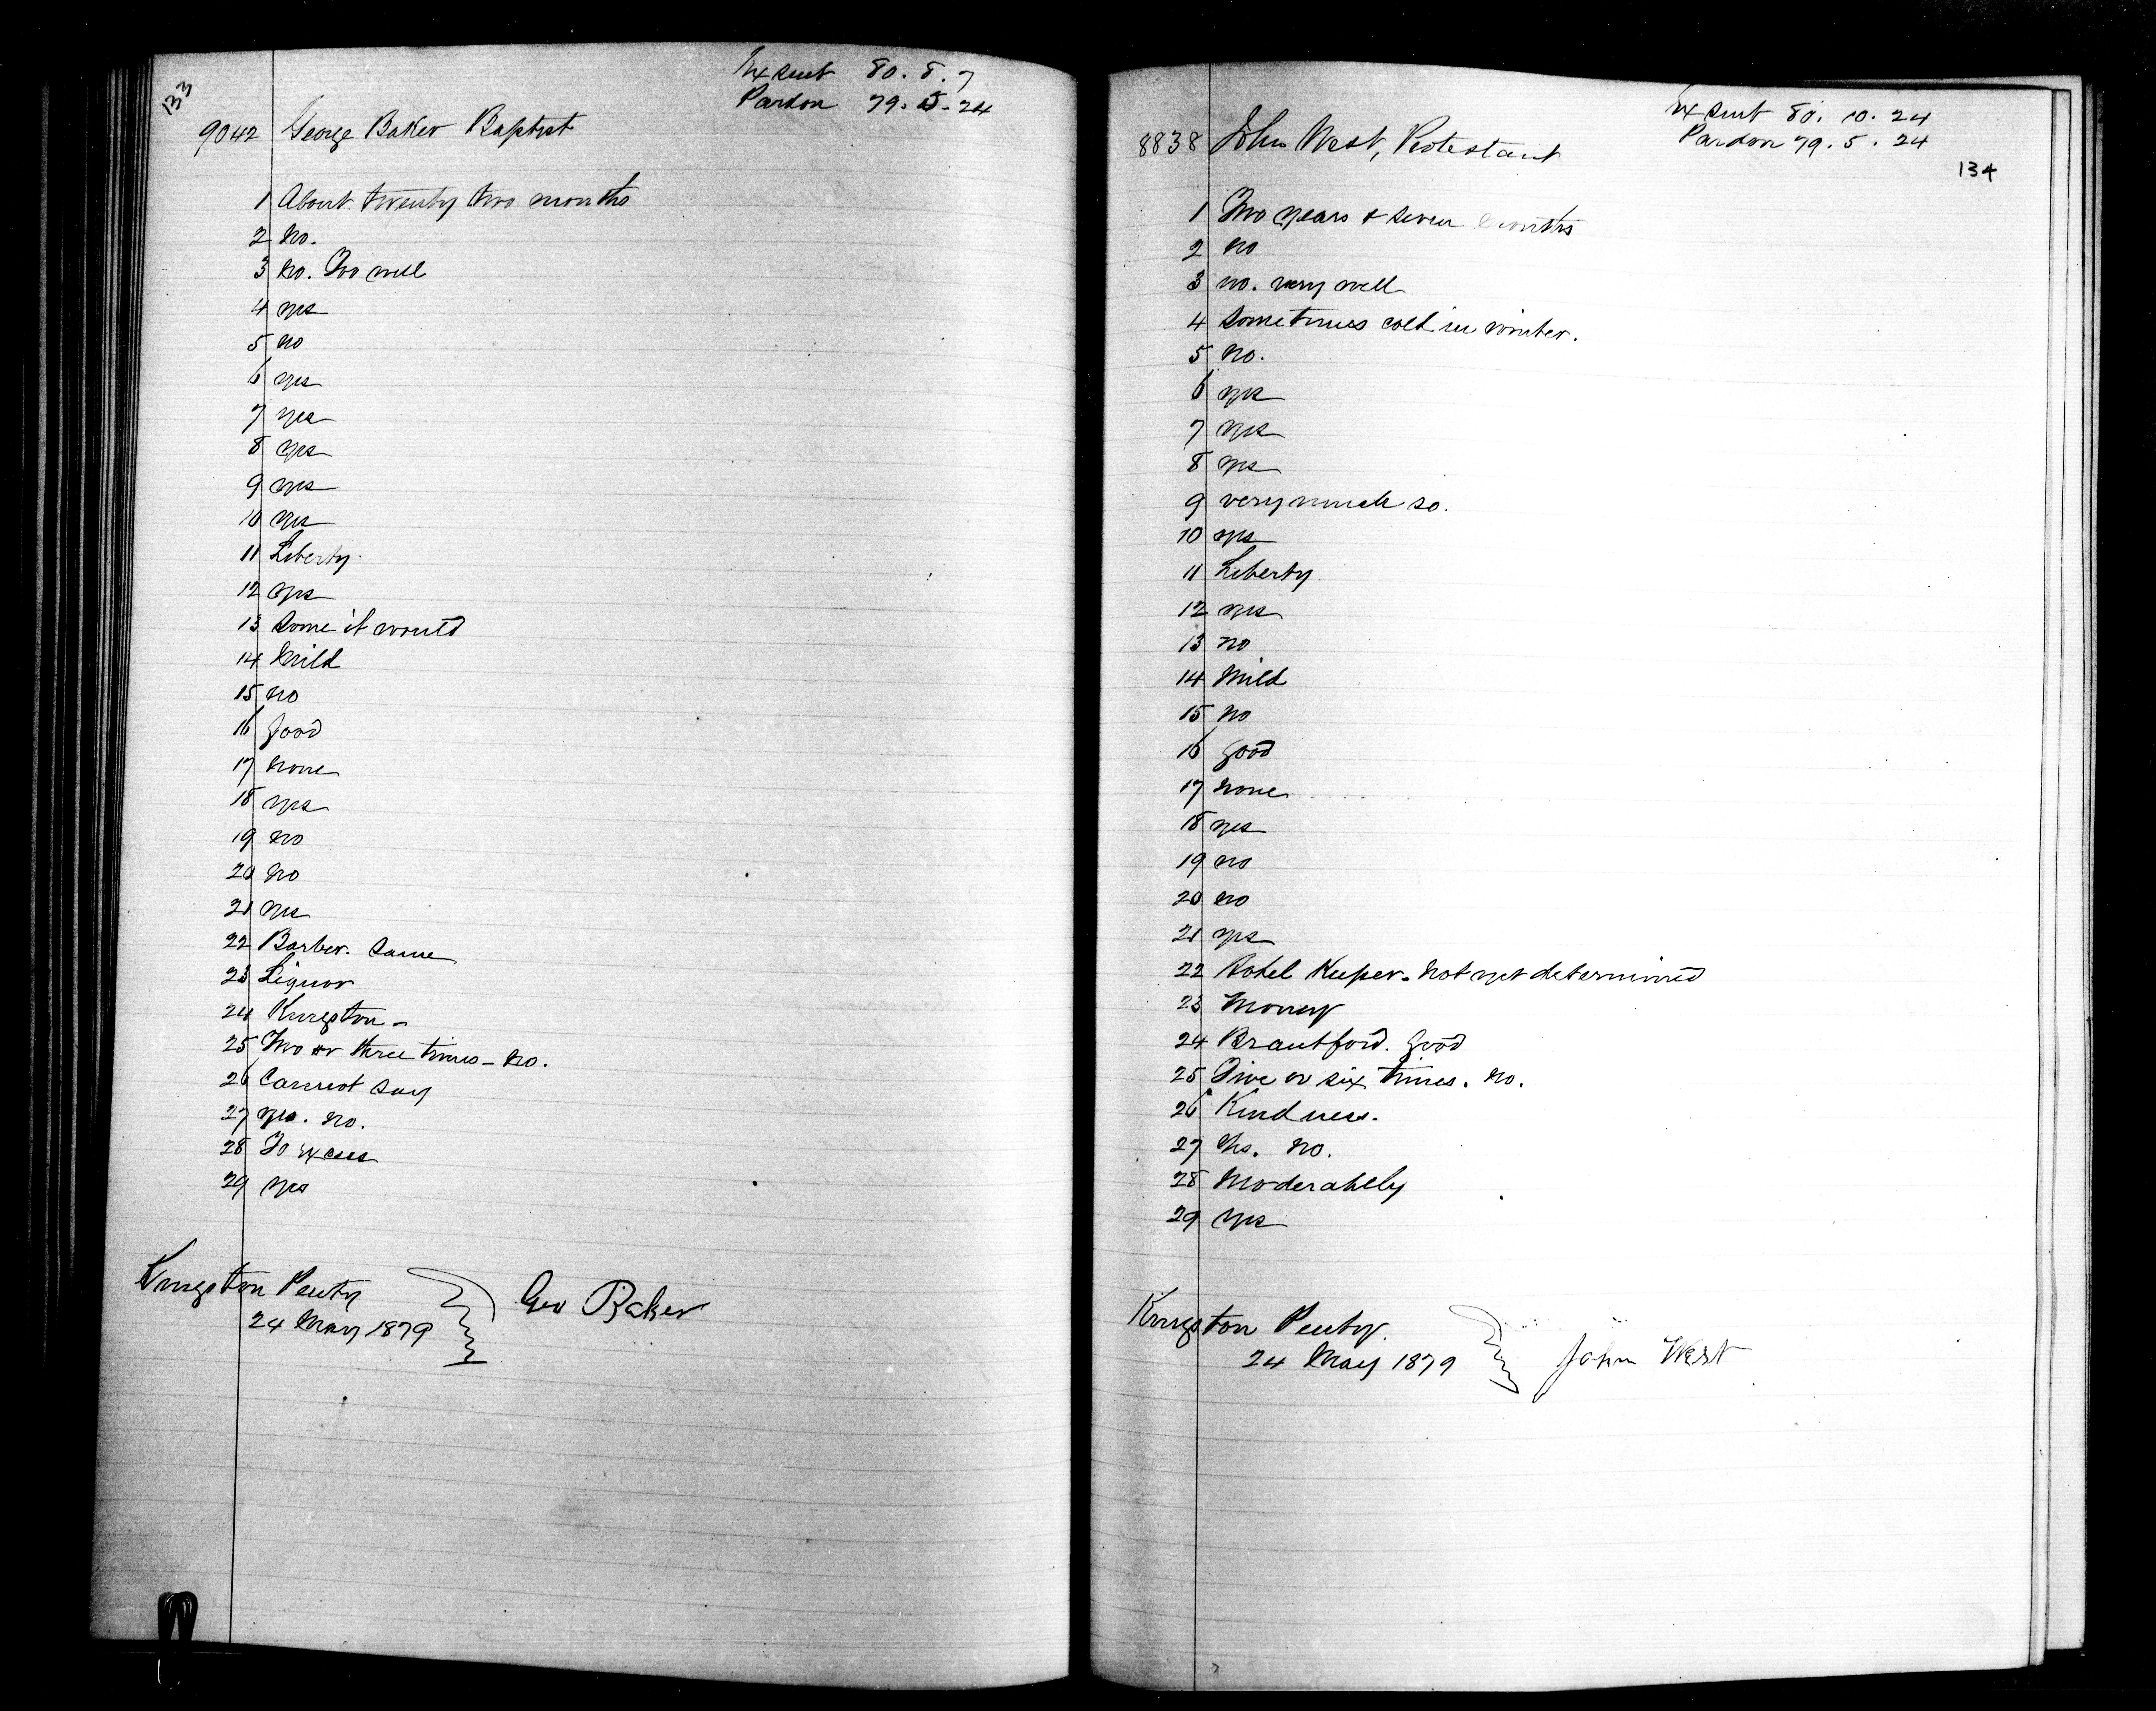 133
Ex Sent 80. 8. 7
Pardon 79. 5. 24
9042 George Baker Baptist
1 About twenty two months
2 No.
3 No. Too well
4 yes
5 no
6 yes
7 yes
8 yes
9 yes
10 yes
11 Liberty.
12 yes
13 Some it would
14 Mild
15 no
16 good
17 none
18 yes
19 no
20 no
21 yes
22 Barber. Same
23 Liquor
24 Kingston -
25 Two or three times - No.
26 Cannot Say
27 yes. no.
28 To excess
29 yes
Kingston Penty
24 May 1879
Geo Baker
Ex Sent 80. 10. 24
Pardon 79. 5. 24
134
8838 John West, Protestant
1 Two years & seven months
2 no
3 no. very well
4 Sometimes cold in winter.
5 no.
6 yes
7 yes
8 yes
9 very much so.
10 yes
11 Liberty
12 yes
13 no
14 Mild
15 no
16 good
17 none
18 yes
19 no
20 no
21 yes
22 Hotel Keeper - Not yet determined
23 Money
24 Brantford. good
25 Five or six times. No.
26 Kindness.
27 Yes. No.
28 Moderately
29 yes
Kingston Penty.
24 May 1879
John West